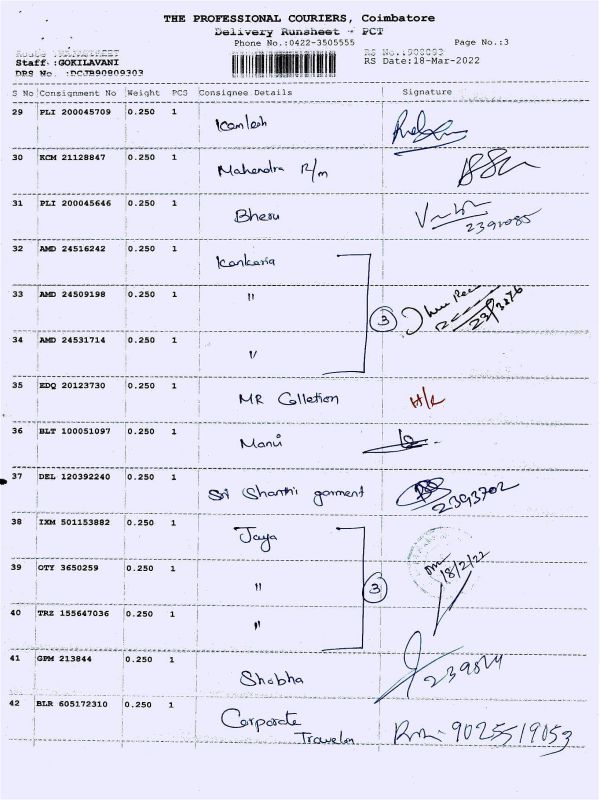 THE PROFESSIONAL COURIERS, Coimbatore
Delivery Runsheet - PCT
Phone No.:0422-3505555 Page No.:3
Staff :GOKILAVANI RS Date:18-Mar-2022
DRS No. :DCJB90809303
S No Consignment No Weight PCS Consignee Details Signature
29 PLI 200045709 0.250 1 Kamlesh
30 KCM 21128847 0.250 1 Mahendra R/m
31 PLI 200045646 0.250 1 Bheru
32 AMD 24516242 0.250 1 Kankaria
33 AMD 24509198 0.250 1 " 3
34 AMD 24531714 0.250 1 "
35 EDQ 20123730 0.250 1 MR Colletion H/L
36 BLT 100051097 0.250 1 Manu
37 DEL 120392240 0.250 1 Sri Shanthi garment 2393702
38 IXM 501153882 0.250 1 Jaya
39 OTY 3650259 0.250 1 " 3 18/2/22
40 TRZ 155647036 0.250 1 "
41 GPM 213844 0.250 1 Shobha
42 BLR 605172310 0.250 1 Corporate
9025519053